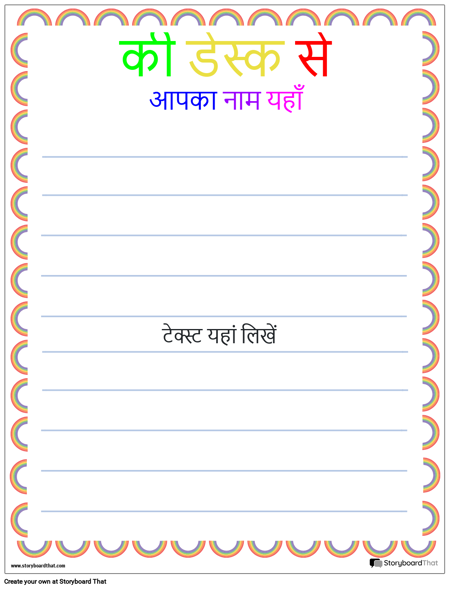 की डेस्क से
आपका नाम यहाँ
टेक्स्ट यहां लिखें
www.storyboardthat.com
StoryboardThat
Create your own at Storyboard That